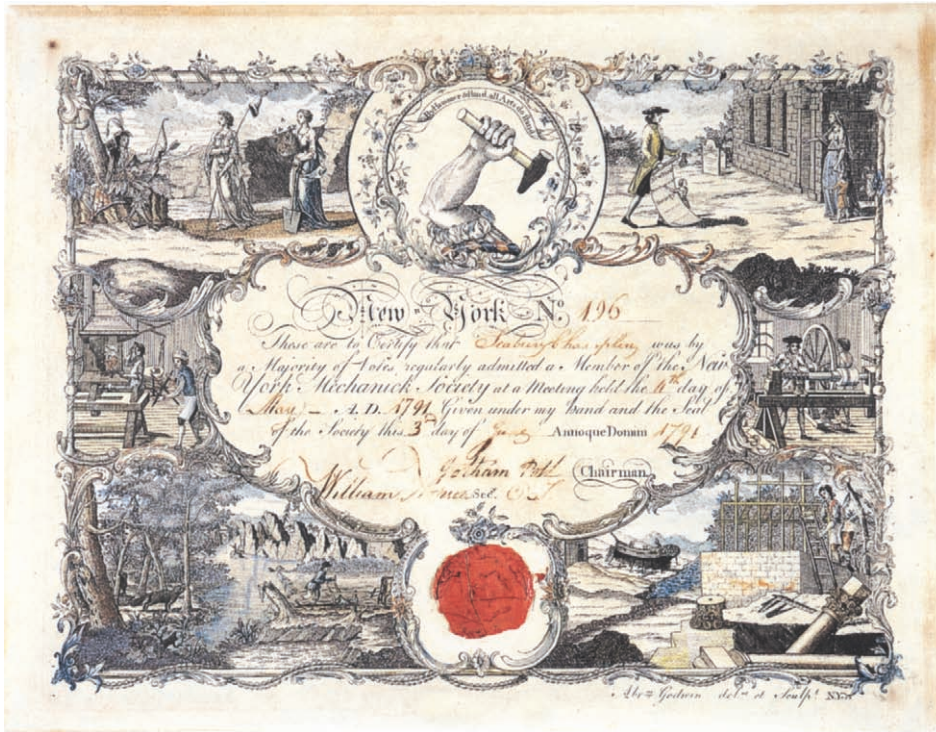 By Hammer & Hand, all Arts do stand
New York No. 196
These are to Certify that Seabury Champlin was by
a Majority of Votes, regularly admitted a Member of the New
York Mechanick Society at a Meeting held the 4th day of
May A.D. 1791 Given under my Hand and the Seal
of the Society this 3d day of Annoque Domini 1791
Chairman
William Sec.
Abrm. Godwin delin. et Sculpt. N.Y.